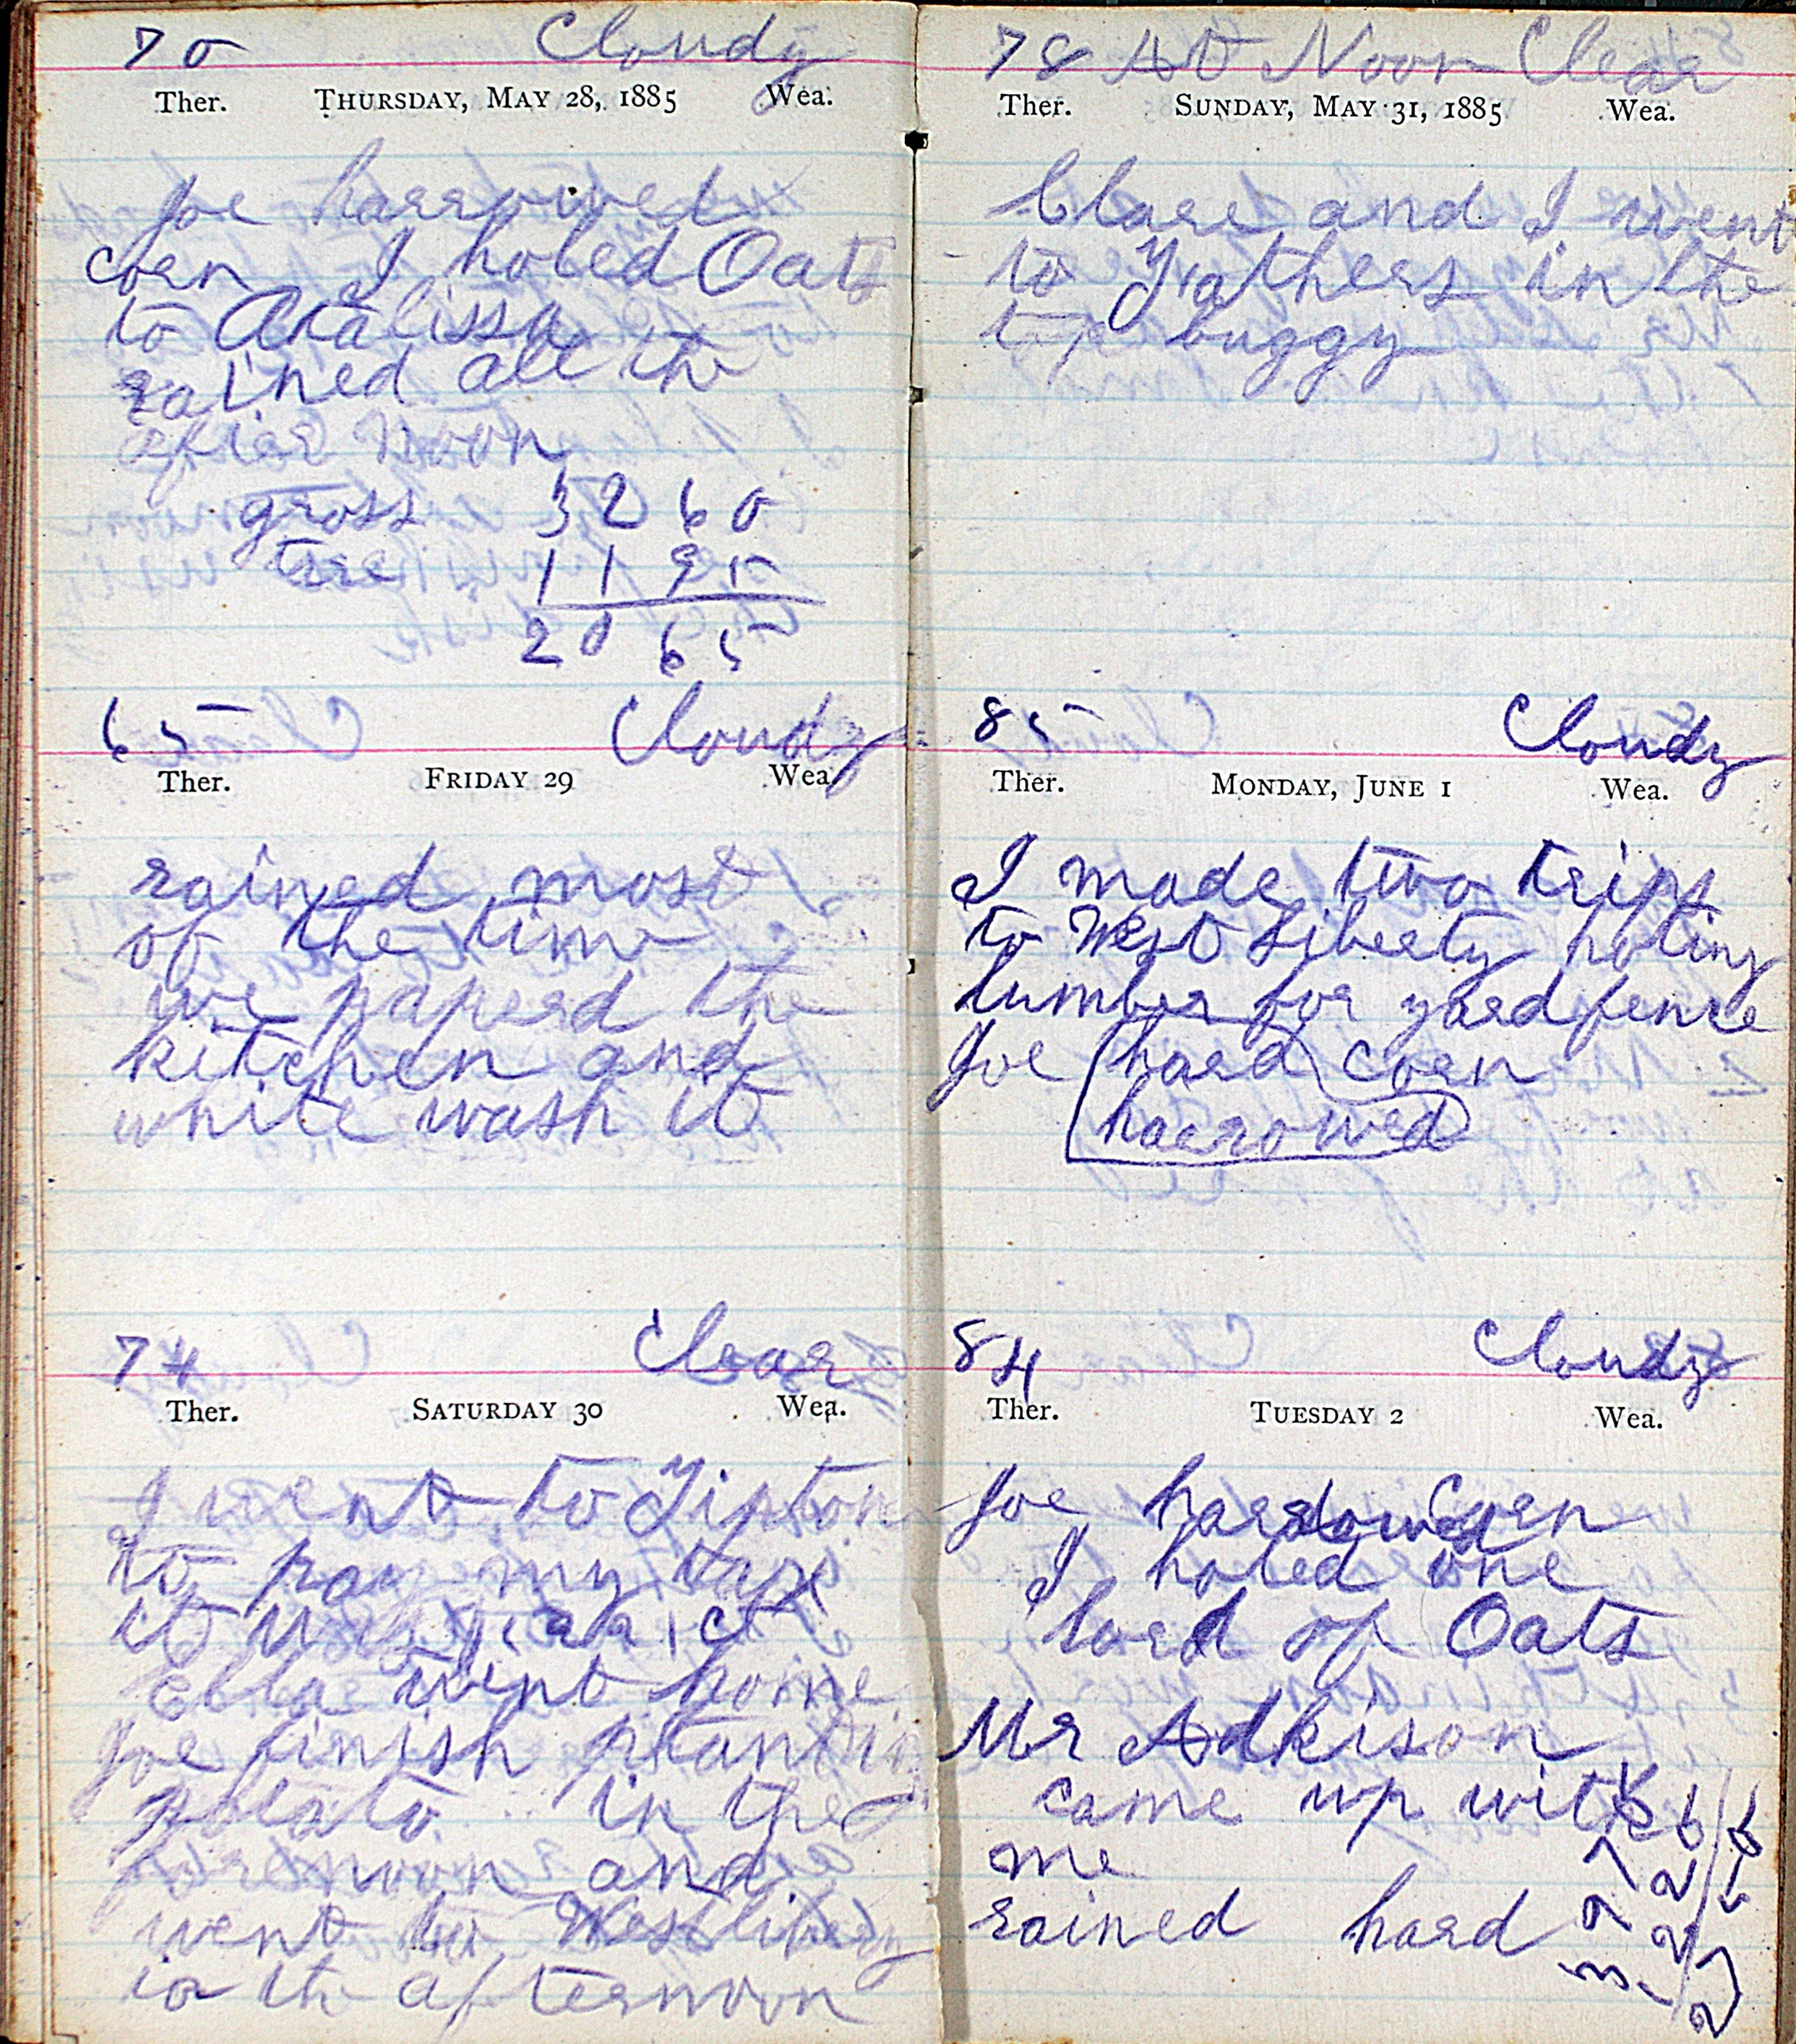 70 Cloudy
Ther. THURSDAY, MAY 28, 1885 Wea.
Joe harrowed
corn I holed Oats
to Atalissa
rained all the
after noon
gross 3260
tare 1195
2065
65 Cloudy
Ther. FRIDAY 29 Wea.
rained most
of the time
we paperd the
kitchen and
white wash it
74 Clear
Ther. SATURDAY 30 Wea.
I went to Tipton
to pay my tax
it was
Ella went home
Joe finish planting
potato in the
forenoon and
went to West liberty
in th afternoon
78 At Noon Clear
Ther. SUNDAY, MAY 31, 1885 Wea.
Clare and I went
to Fathers in the
top buggy
85 Cloudy
Ther. MONDAY, JUNE 1 Wea.
I made two trips
to West Liberty holing
lumber for yard fence
Joe hard corn
harrowed
84 Cloudy
Ther. TUESDAY 2 Wea.
Joe harrowed Corn
I holed one
load of Oats
Mr Adkison
came up with
me
rained hard